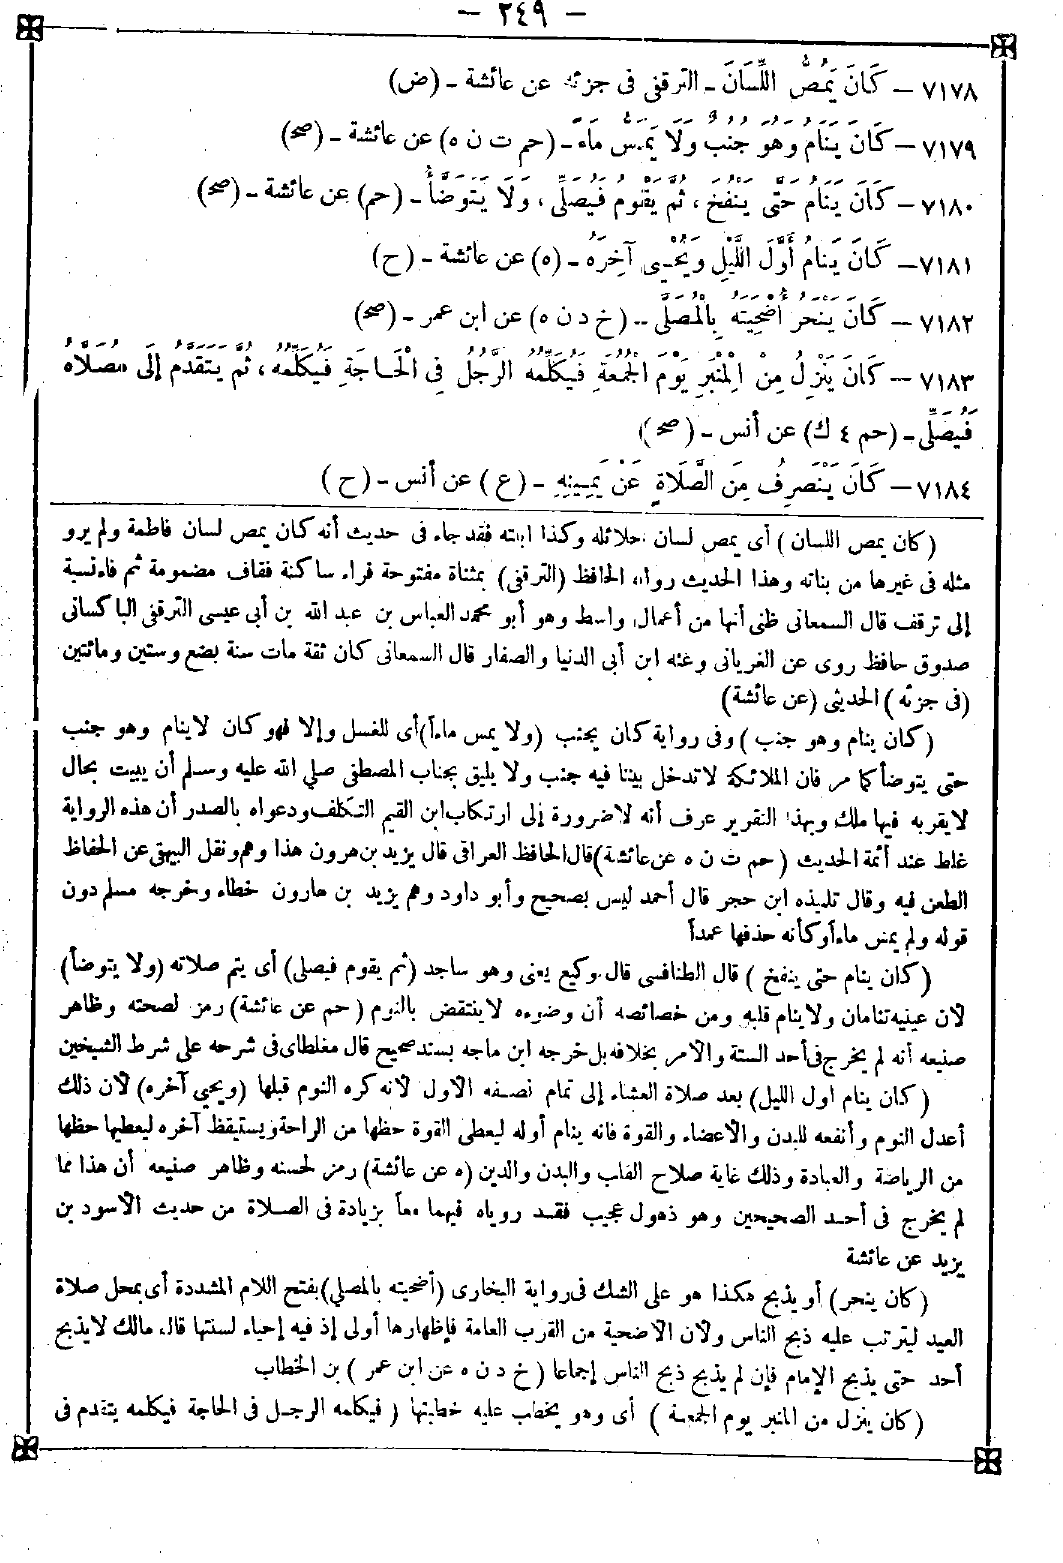 – ٢٤٩ –
٧١٧٨ – كَانَ يَمُصُّ اللِّسَانَ – الترقفى فى جزئه عن عائشة – (ض)
٧١٧٩ – كَانَ يَنَامُ وهُوَ جُنُبٌ وَلَا يَمَسُّ مَاءً – (حم ت ن ه) عن عائشة – (صح)
٧١٨٠ – كَانَ يَنَامُ حَتَّى يَنْفُخَ، ثُمَّ يَقُومُ فَيُصَلِّى، وَلَا يَتَوَضَّأُ – (حم) عن عائشة – (صح)
٧١٨١ – كَانَ يَنَامُ أَوَّلَ اللَّيْلِ وَيُحْيِى آخِرَهُ – (ه) عن عائشة – (ح)
٧١٨٢ – كَانَ يَنْحَرُ أُضْحِيَتَهُ بِالْمُصَلَّى – (خ د ن ه) عن ابن عمر – (صح)
٧١٨٣ – كَانَ يَنْزِلُ مِنْ الْمِنْبَرِ يَوْمَ الْجُمُعَةِ فَيُكَلِّمُهُ الرَّجُلُ فِى الْحَاجَةِ فَيُكَلِّمُهُ، ثُمَّ يَتَقَدَّمُ إِلَى مُصَلَّاهُ
فَيُصَلِّى – (حم ٤ ك) عن أنس – (صح)
٧١٨٤ – كَانَ يَنْصَرِفُ مِنَ الصَّلَاةِ عَنْ يَمِينِهِ – (ع) عن أنس – (ح)
(كان يمص اللسان) أى يمص لسان حلائله وكذا ابنته فقد جاء فى حديث أنه كان يمص لسان فاطمة ولم يرو
مثله فى غيرها من بناته وهذا الحديث رواه الحافظ (الترقفى) بمثناة مفتوحة فراء ساكنة فقاف مضمومة ثم فاء نسبة
إلى ترقف قال السمعانى ظنى أنها من أعمال واسط وهو أبو محمد العباس بن عبد الله بن أبى عيسى الترقفى الباكسائى
صدوق حافظ روى عن الغريانى وعنه ابن أبى الدنيا والصفار قال السمعانى كان ثقة مات سنة بضع وستين ومائتين
(فى جزئه) الحديثى (عن عائشة)
(كان ينام وهو جنب) وفى رواية كان يجنب (ولا يمس ماءاً) أى للغسل وإلا فهو كان لاينام وهو جنب
حتى يتوضأ كما مر فان الملائكة لا تدخل بيتا فيه جنب ولا يليق بجناب المصطفى صلي الله عليه وسلم أن يبيت بحال
لا يقربه فيها ملك وبهذا التقرير عرف أنه لا ضرورة إلى ارتكاب ابن القيم التكلف ودعواه بالصدر أن هذه الرواية
غلط عند أئمة الحديث (حم ت ن ه عن عائشة) قال الحافظ العراقى قال يزيد بن هرون هذا وهم ونقل البيهقى عن الحفاظ
الطعن فيه وقال تلميذه ابن حجر قال أحمد ليس بصحيح وأبو داود وهم يزيد بن هارون خطاء وخرجه مسلم دون
قوله ولم يمس ماءاً وكأنه حذفها عمداً
(كان ينام حتى ينفخ) قال الطنافسى قال وكيع يعنى وهو ساجد (ثم يقوم فيصلى) أى يتم صلاته (ولا يتوضأ)
لأن عينيه تنامان ولا ينام قلبه ومن خصائصه أن وضوءه لا ينتقض بالنوم (حم عن عائشة) رمز لصحته وظاهر
صنيعه أنه لم يخرج فى أحد الستة والأمر بخلافه بل خرجه ابن ماجه بسند صحيح قال مغلطاى فى شرحه على شرط الشيخين
(كان ينام اول الليل) بعد صلاة العشاء إلى تمام نصفه الأول لأنه كره النوم قبلها (ويحيى آخره) لأن ذلك
أعدل النوم وأنفعه للبدن والأعضاء والقوة فانه ينام أوله ليعطى القوة حظها من الراحة ويستيقظ آخره ليعطيها حظها
من الرياضة والعبادة وذلك غاية صلاح القلب والبدن والدين (ه عن عائشة) رمز لحسنه وظاهر صنيعه أن هذا مما
لم يخرج فى أحد الصحيحين وهو ذهول عجيب فقد روياه فيهما معاً بزيادة فى الصلاة من حديث الأسود بن
يزيد عن عائشة
(كان ينحر) أو يذبح هكذا هو على الشك فى رواية البخارى (أضحيته بالمصلي) بفتح اللام المشددة أى بمحل صلاة
العيد ليترتب عليه ذبح الناس ولأن الأضحية من القرب العامة فإظهارها أولى إذ فيه إحياء لسنتها قال مالك لا يذبح
أحد حتى يذبح الإمام فإن لم يذبح ذبح الناس إجماعا (خ د ن ه عن ابن عمر) بن الخطاب
(كان ينزل من المنبر يوم الجمعة) أى وهو يخطب عليه خطبتها (فيكلمه الرجل فى الحاجة فيكلمه يتقدم فى